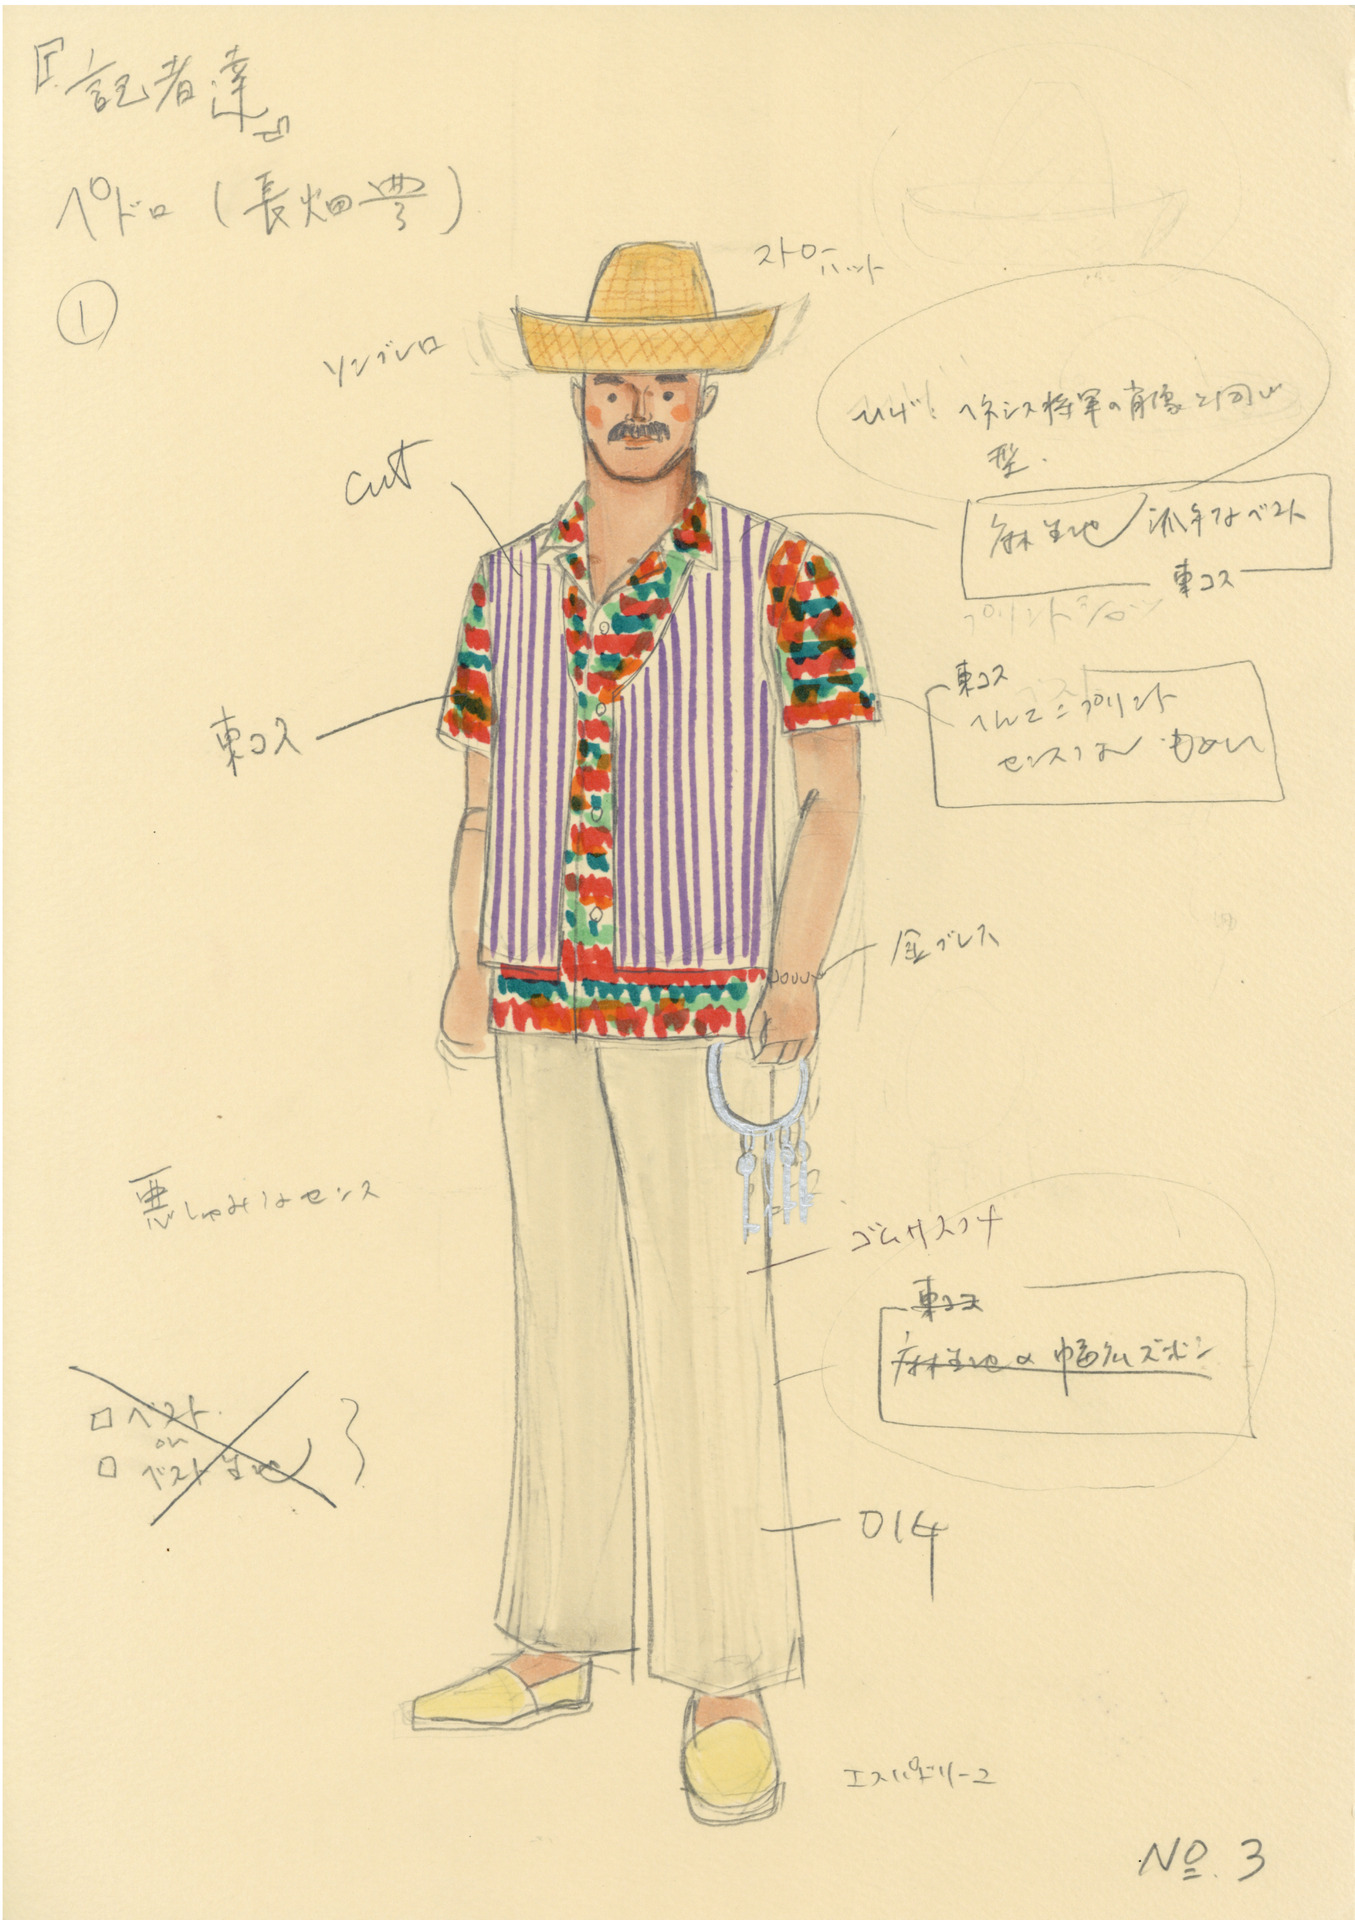 『記者達』
ペドロ (長畑豊)
①
ストロー
ハット
ソンブレロ
cut
ひげ! ヘネシス将軍の肖像と同じ
型.
麻生地 派手なベスト
東コス
プリントシャツ
東コス
へんてこプリント
センスない
東コス
金ブレス
悪しゅみなセンス
ゴムサスツキ
東コス
麻生地の幅広ズボン
□ ベスト.
or
□ ベスト生地
014
エスパドリーユ
No. 3